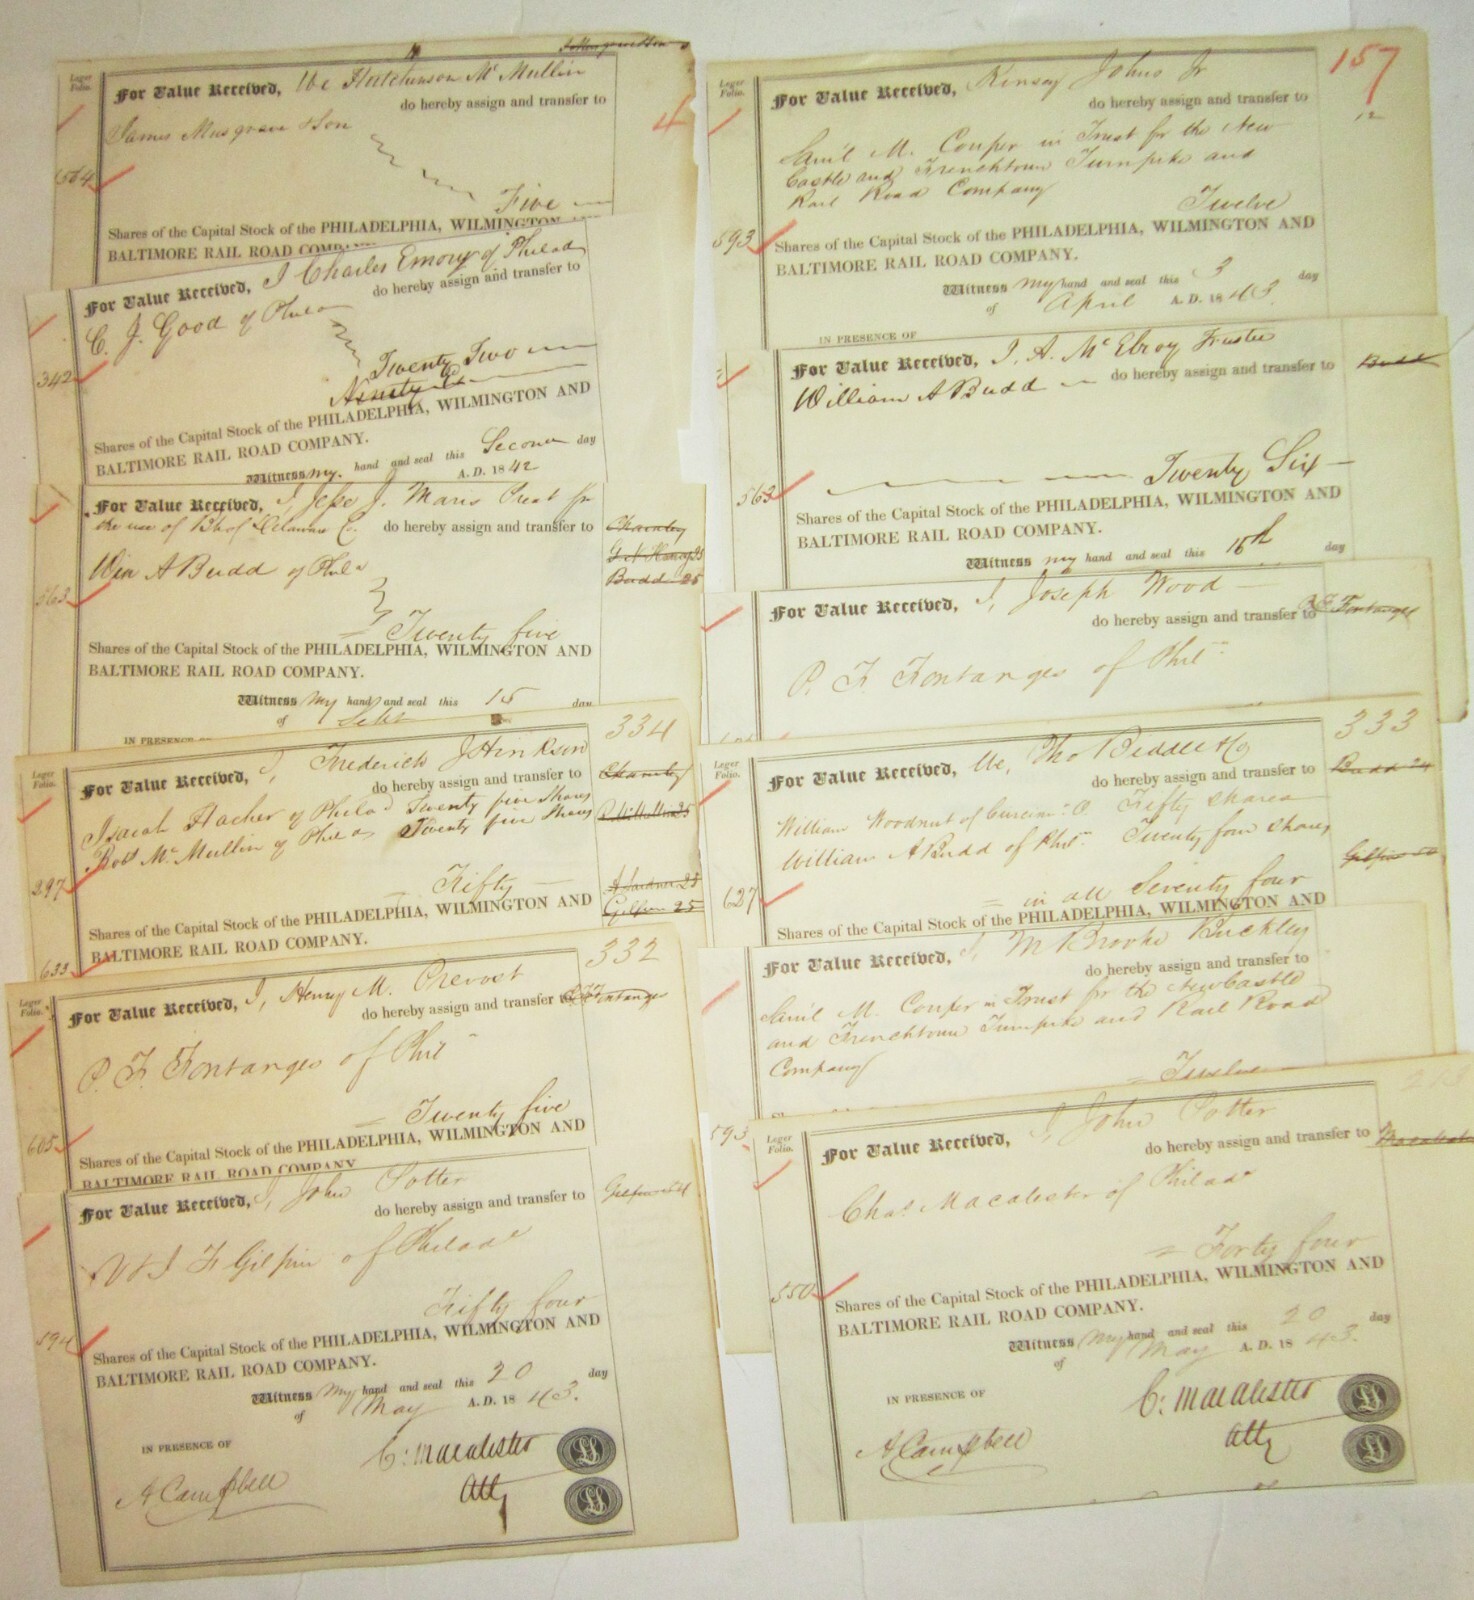 Leger
Folio.
For Value Received, We Hutchinson Mc Mullin
do hereby assign and transfer to
James Musgrave & Son
4
564
Five
Shares of the Capital Stock of the PHILADELPHIA, WILMINGTON
BALTIMORE RAIL ROAD
For Value Received, I Charles Emory of Philad
do hereby assign and transfer to
C. J. Good of Phila
342
Twenty Two
Ninety
Shares of the Capital Stock of the PHILADELPHIA, WILMINGTON AND
BALTIMORE RAIL ROAD COMPANY.
Witness my hand and seal this Second day
A. D. 1842
For Value Received, I, Jesse J. Maris Prest for
the use of Bk of Delaware C. do hereby assign and transfer to
Chamley
Wm A Budd of Phila
Budd 25
563
Twenty five
Shares of the Capital Stock of the PHILADELPHIA, WILMINGTON AND
BALTIMORE RAIL ROAD COMPANY.
Witness my hand and seal this 15 day
of
IN PRESENCE OF
334
Leger
Folio.
For Value Received, I, Frederick J Hinkson
do hereby assign and transfer to
Chamley
Isaiah Hacker of Philad Twenty five Shares
Robt Mc Mullin of Philad Twenty five Shares
297
Fifty
Gilpin 25
Shares of the Capital Stock of the PHILADELPHIA, WILMINGTON AND
BALTIMORE RAIL ROAD COMPANY.
633
332
Leger
Folio.
For Value Received, I, Henry M. Prevost
do hereby assign and transfer to
P. F. Fontanges
P. F. Fontanges of Phil
Twenty five
605
Shares of the Capital Stock of the PHILADELPHIA, WILMINGTON AND
BALTIMORE RAIL ROAD COMPANY
For Value Received, I, John Potter
do hereby assign and transfer to
W J F Gilpin of Philada
Fifty four
594
Shares of the Capital Stock of the PHILADELPHIA, WILMINGTON AND
BALTIMORE RAIL ROAD COMPANY.
Witness my hand and seal this 20 day
of May A. D. 1843.
IN PRESENCE OF
C: Macalester
A Campbell
Atty
LS
LS
Leger
Folio.
157
For Value Received, Kensey Johns Jr
do hereby assign and transfer to
12
Saml M. Couper in Trust for the New
Castle and Frenchtown Turnpike and
Rail Road Company
Twelve
593
Shares of the Capital Stock of the PHILADELPHIA, WILMINGTON AND
BALTIMORE RAIL ROAD COMPANY.
Witness my hand and seal this 3 day
of April A. D. 1843
IN PRESENCE OF
For Value Received, I. A. Mc Elroy Trustee
Budd
William A Budd do hereby assign and transfer to
Twenty Six
563
Shares of the Capital Stock of the PHILADELPHIA, WILMINGTON AND
BALTIMORE RAIL ROAD COMPANY.
Witness my hand and seal this 15th day
For Value Received, I, Joseph Wood
do hereby assign and transfer to
P. F. Fontanges
P. F. Fontanges of Phil
333
Leger
Folio.
For Value Received, We, Tho Biddle & Co
do hereby assign and transfer to
Budd 24
William Woodnut of Cincin: O Fifty shares
William A Budd of Phil Twenty four Shares
Gilpin 50
627
in all Seventy four
Shares of the Capital Stock of the PHILADELPHIA, WILMINGTON AND
For Value Received, I, M Brooke Buckley
do hereby assign and transfer to
Saml M. Couper in Trust for the New Castle
and Frenchtown Turnpike and Rail Road
Company
Twelve
593
Leger
Folio.
For Value Received, I John Potter
do hereby assign and transfer to
Chas. Macalester of Philada
Forty four
550
Shares of the Capital Stock of the PHILADELPHIA, WILMINGTON AND
BALTIMORE RAIL ROAD COMPANY.
Witness my hand and seal this 20 day
of May A. D. 1843.
IN PRESENCE OF
C: Macalester
A Campbell
Atty
LS
LS